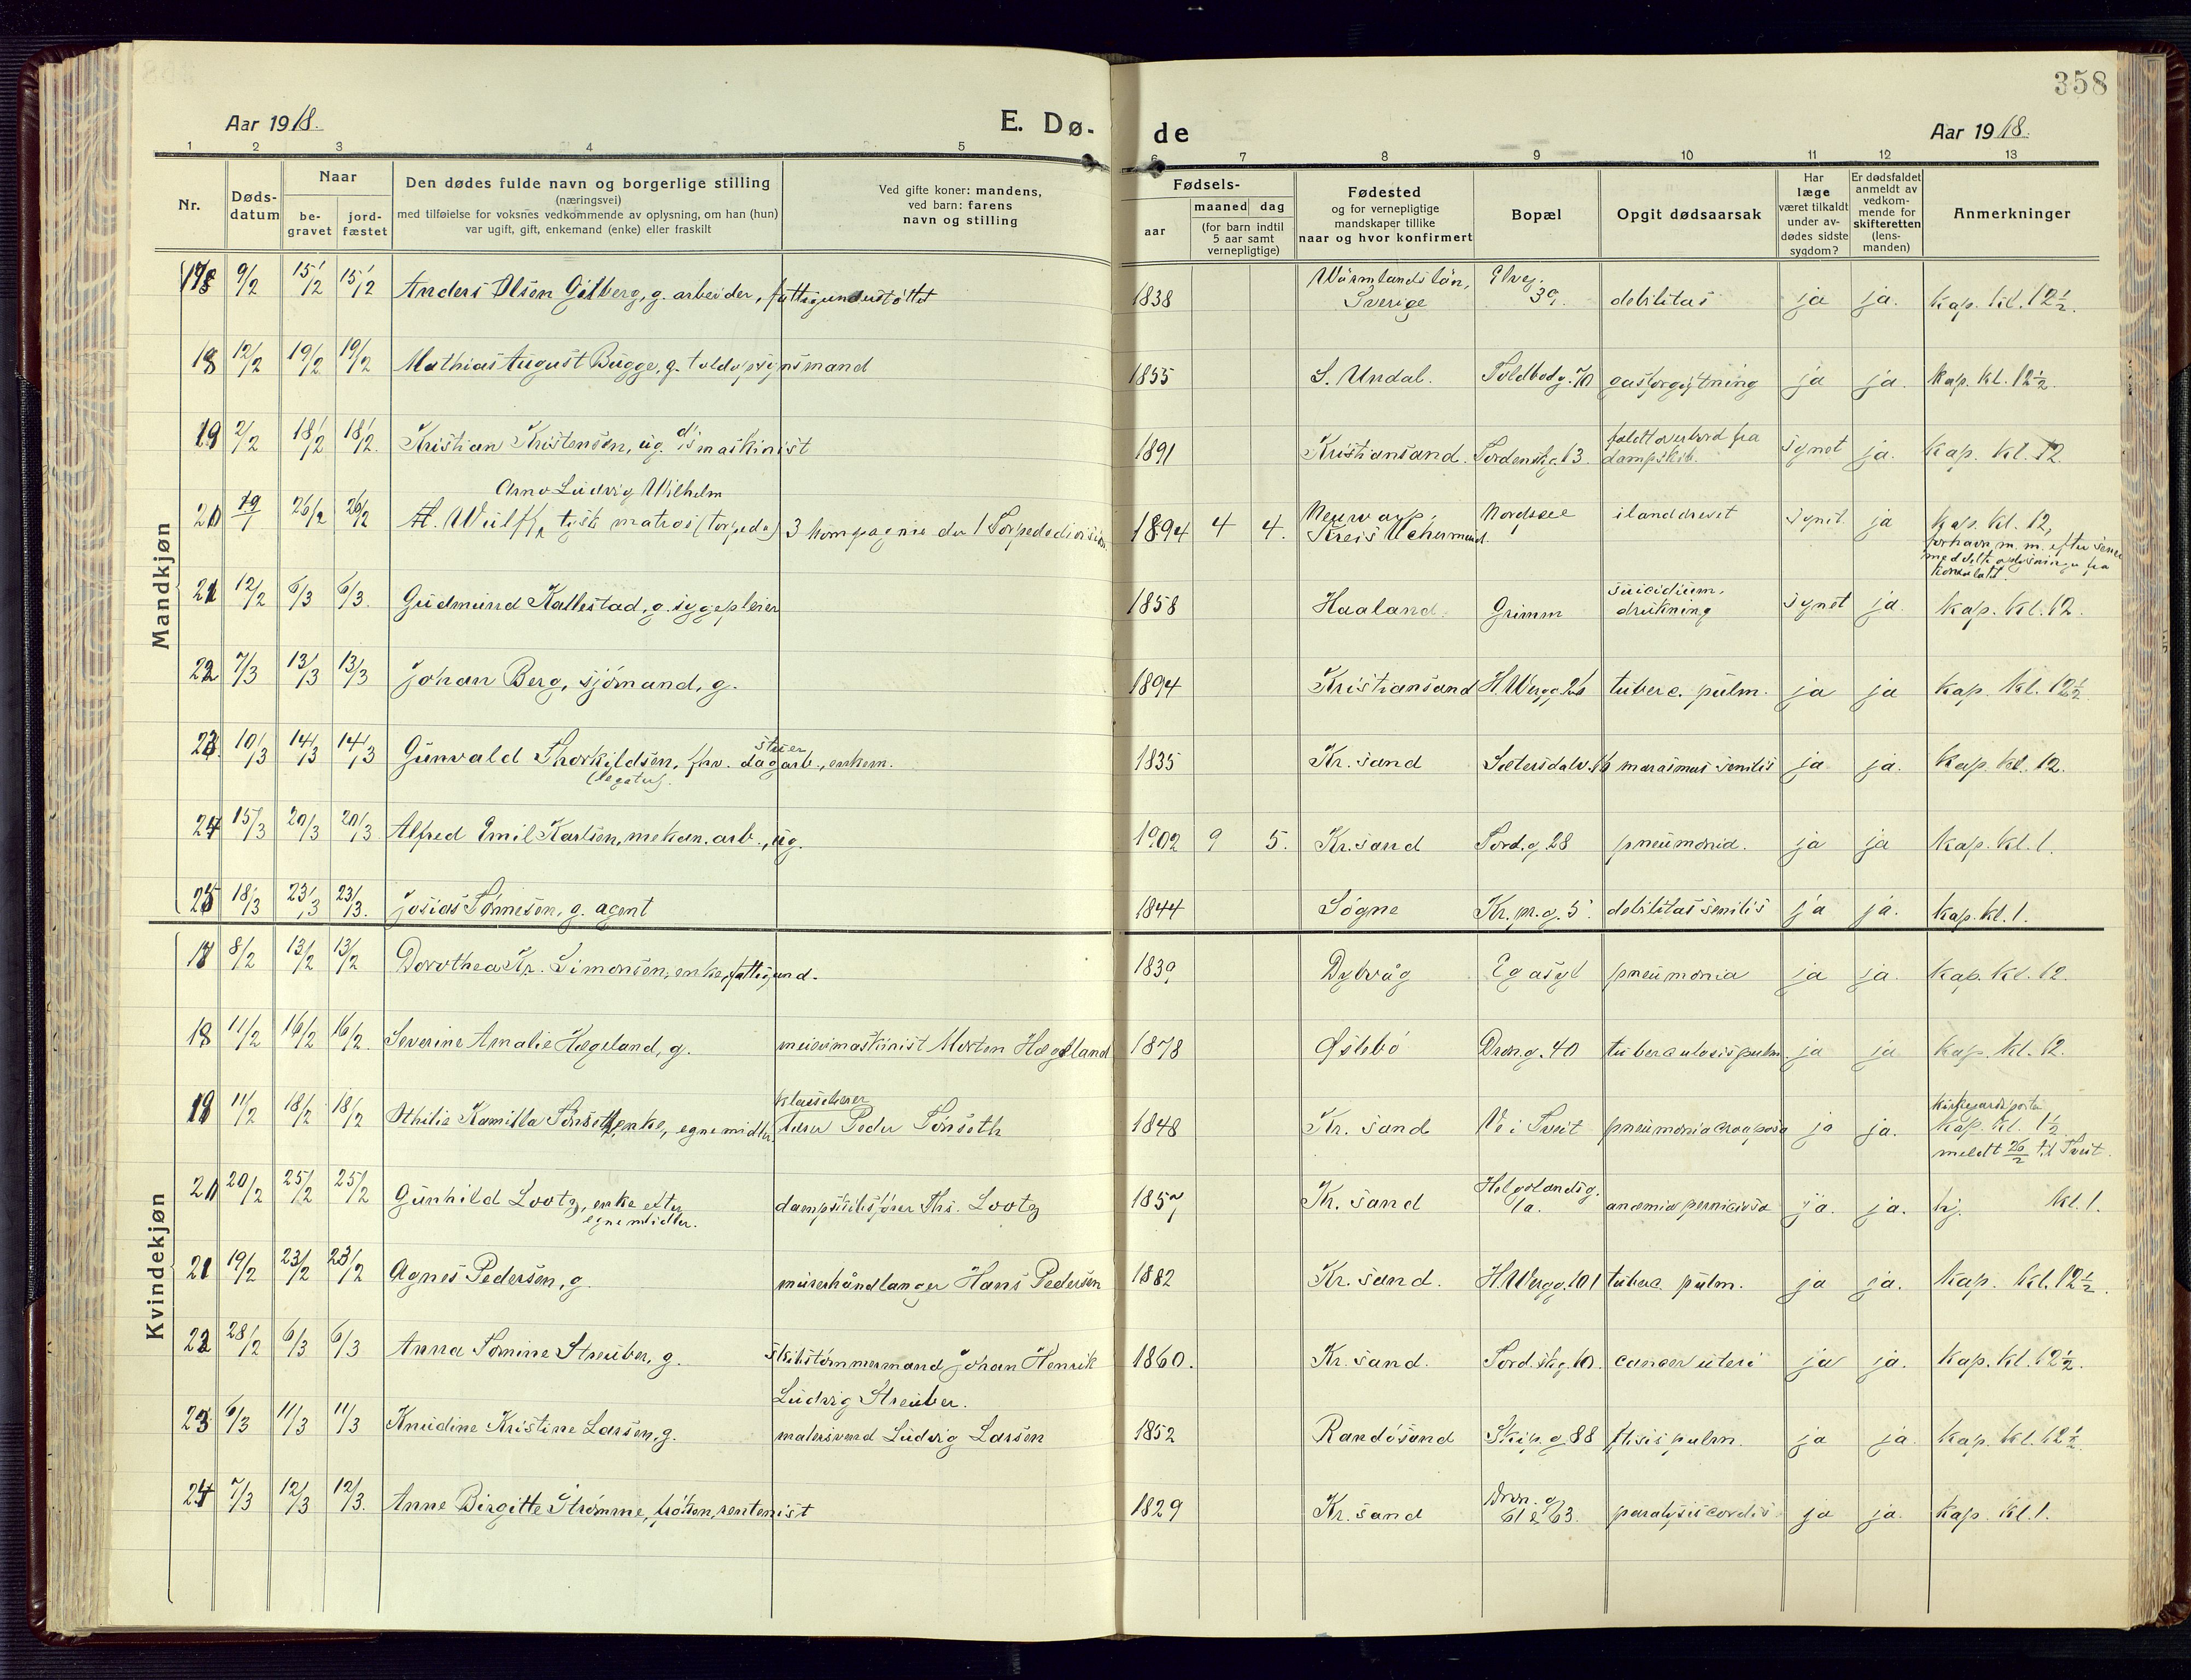 358
Aar 1918.
E. Dø-
de
Aar 1918.
1 2 3 4 5 6 7 8 9 10 11 12 13
Nr.
Døds-
datum
Naar
be-
gravet
jord-
fæstet
Den dødes fulde navn og borgerlige stilling
(næringsvei)
med tilføielse for voksnes vedkommende av oplysning, om han (hun)
var ugift, gift, enkemand (enke) eller fraskilt
Ved gifte koner: mandens,
ved barn: farens
navn og stilling
Fødsels-
aar
maaned dag
(for barn indtil
5 aar samt
vernepligtige)
Fødested
og for vernepligtige
mandskaper tillike
naar og hvor konfirmert
Bopæl
Opgit dødsaarsak
Har
læge
været tilkaldt
under av-
dødes sidste
sygdom?
Er dødsfaldet
anmeldt av
vedkom-
mende for
skifteretten
(lens-
manden)
Anmerkninger
Mandkjøn
9/2 15/2 15/2 Anders Olsen Gilberg, g. arbeider, fattigunderstöttet 1838 Wärmlandslän, Sverige Elveg. 39. debilitas ja ja. Kap. kl. 12½.
18 12/2 19/2 19/2 Mathias August Bugge, g. toldopsynsmand 1855 S. Undal. Toldbodg. 70 gasforgiftning ja ja. Kap. kl. 12½.
19 2/2 18/2 18/2. Kristian Kristensen, ug. maskinist 1891 Kristiansand. Tordenskg. 13. faldt overbord fra dampskib. synet ja. Kap. kl. 12
Arno Ludvig Wilhelm
26/2 26/2 Wulff, tysk matros (torpedo) 3 kompagnie der 1 Torpededivision. 1894 4 4. Neuwarp, Kreis Uckermünd. Nordsee ilanddrevet synet ja Kap. kl. 12,
fornavn m. m. efter senere
meddelte oplysninger fra
konsulatet.
21 12/2 6/3 6/3. Gudmund Kallestad, g. sygepleier 1858 Haaland. Grimm suicidium, drukning synet ja Kap. kl. 12.
22 7/3 13/3 13/3 Johan Berg, sjömand, g. 1894 Kristiansand H. Wergg. tuberc. pulm. ja ja Kap. kl. 12½.
23. 10/3 14/3 14/3 Gunvald Thorkildsen, fhv. dagarb., enkem. 1835 Kr. sand Sætersdalv. marasmus senilis ja ja. Kap. kl. 12.
(legater).
24 15/3 20/3 20/3 Alfred Emil Karlsen, mekan. arb., ug. 1902 9 5. Kr. sand Tord. g. 28 pneumonia. ja ja Kap. kl. 1.
25 18/3 23/3 23/3. Josias Tönnesen, g. agent 1844 Sögne Kr. pr. g. 5. debilitas senilis ja ja. Kap. kl. 1.
Kvindekjøn
17 8/2 13/2 13/2 Dorothea Kr. Simonsen, enke, fattigund. 1839 Dybvåg Eg asyl pneumonia ja ja. Kap. kl. 12.
18 11/2 16/2 16/2. Severine Amalie Hægeland, g. meierimaskinist Morten Hægeland 1878 Öslebö Dron. g. 40 tuberculosis pulm. ja ja Kap. kl. 12.
19 11/2 18/2 18/2 Othilie Kamilla Tönseth, enke, egne midler, klasselærer Peder Tönseth 1848 Kr. sand Ve i Tveit pneumonia crouposa ja ja. kirkegårdsporten
Kap. kl. 1½
meldt 26/2 til Tveit.
20/2 25/2 25/2 Gunhild Lootz, enke efter dampskibsfører Ths. Lootz 1857 Kr. sand Helgelandsg. 1a. anæmia perniciosa ja. ja. hj. kl. 1.
egne midler.
21 19/2 23/2 23/2 Agnes Pedersen, g. murerhåndlanger Hans Pedersen 1882 Kr. sand. H. Wergg. 101 tuberc. pulm. ja ja. Kap. kl. 12½.
22 28/2 6/3 6/3 Anna Tomine Streuber, g. skibstömmermand Johan Henrik 1860. Kr. sand. Tord. skg. 10. cancer uteri ja ja. Kap. kl. 12½.
Ludvig Streuber.
23 6/3 11/3 11/3 Knudine Kristine Larsen, g. malersvend Ludvig Larsen 1852 Randösund Skip. g. 88 ftisis pulm. ja ja. Kap. kl. 12½
24 7/3 12/3 12/3. Anne Birgitte Strömme, fröken, rentenist 1829 Kr. sand Dron. g. 61 & 63. paralysis cordis ja ja. Kap. kl. 1.